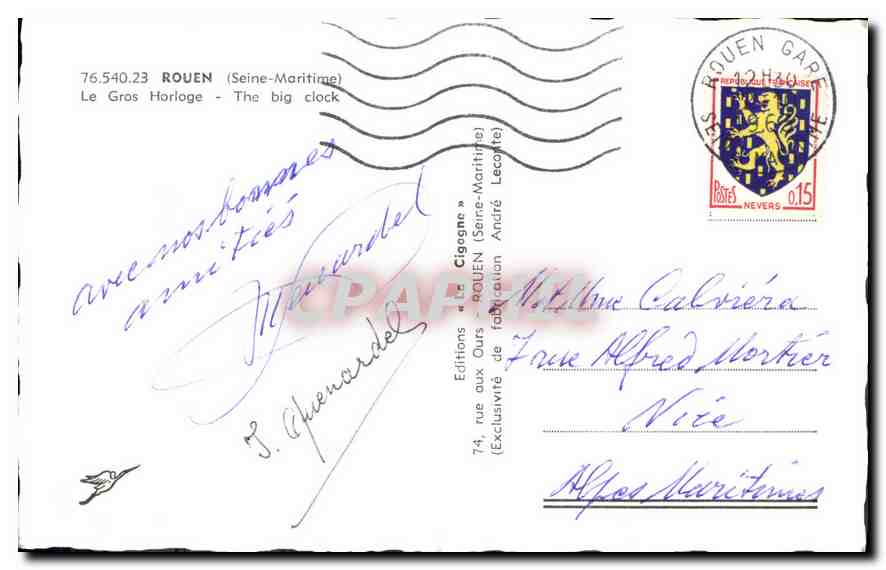 76.540.23 ROUEN (Seine-Maritime)
Le Gros Horloge - The big clock
avec nos bonnes
amitiés
J. Quenardel
Editions « La Cigogne »
74, rue aux Ours - ROUEN (Seine-Maritime)
(Exclusivité de fabrication André Leconte)
ROUEN GARE
12H30
REPUBLIQUE FRANÇAISE
POSTES
0,15
NEVERS
M. et Mme Calviéra
7 rue Alfred Mortier
Nice
Alpes Maritimes